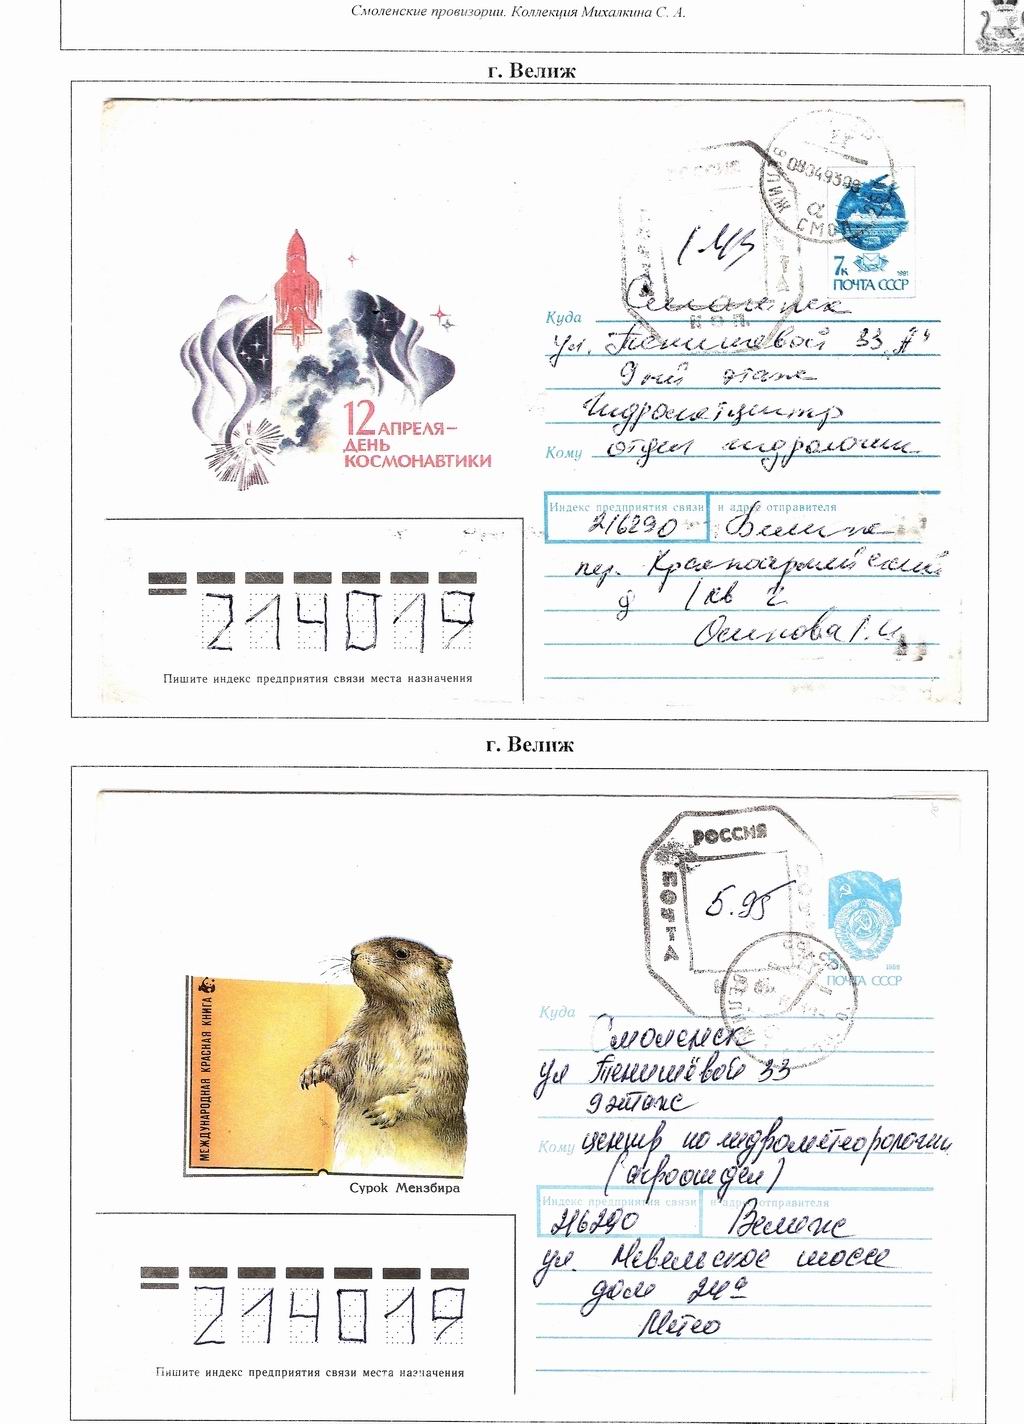 Смоленские провизории. Коллекция Михалкина С. А.
г. Велиж
РОССИЯ
ПОЧТА
КОП.
080493
СМОЛ
7к
1991
ПОЧТА СССР
12 АПРЕЛЯ–
ДЕНЬ
КОСМОНАВТИКИ
Куда Смоленск
ул. Тенишевой 33 "А"
9 этаж
Гидрометцентр
Кому отдел гидрологии
Индекс предприятия связи и адрес отправителя
216290 Велиж
пер. Красноармейский
д 1 кв 2
Осипова Г. И.
214019
Пишите индекс предприятия связи места назначения
г. Велиж
РОССИЯ
ПОЧТА
5.95
5к
1988
ПОЧТА СССР
МЕЖДУНАРОДНАЯ КРАСНАЯ КНИГА
Сурок Мензбира
Куда
Смоленск
ул Тенишевой 33
9 этаж
Кому центр по гидрометеорологии
(агроотдел)
Индекс предприятия связи и адрес отправителя
216290 Велиж
ул. Невельское шоссе
дом 24а
Метео
214019
Пишите индекс предприятия связи места назначения